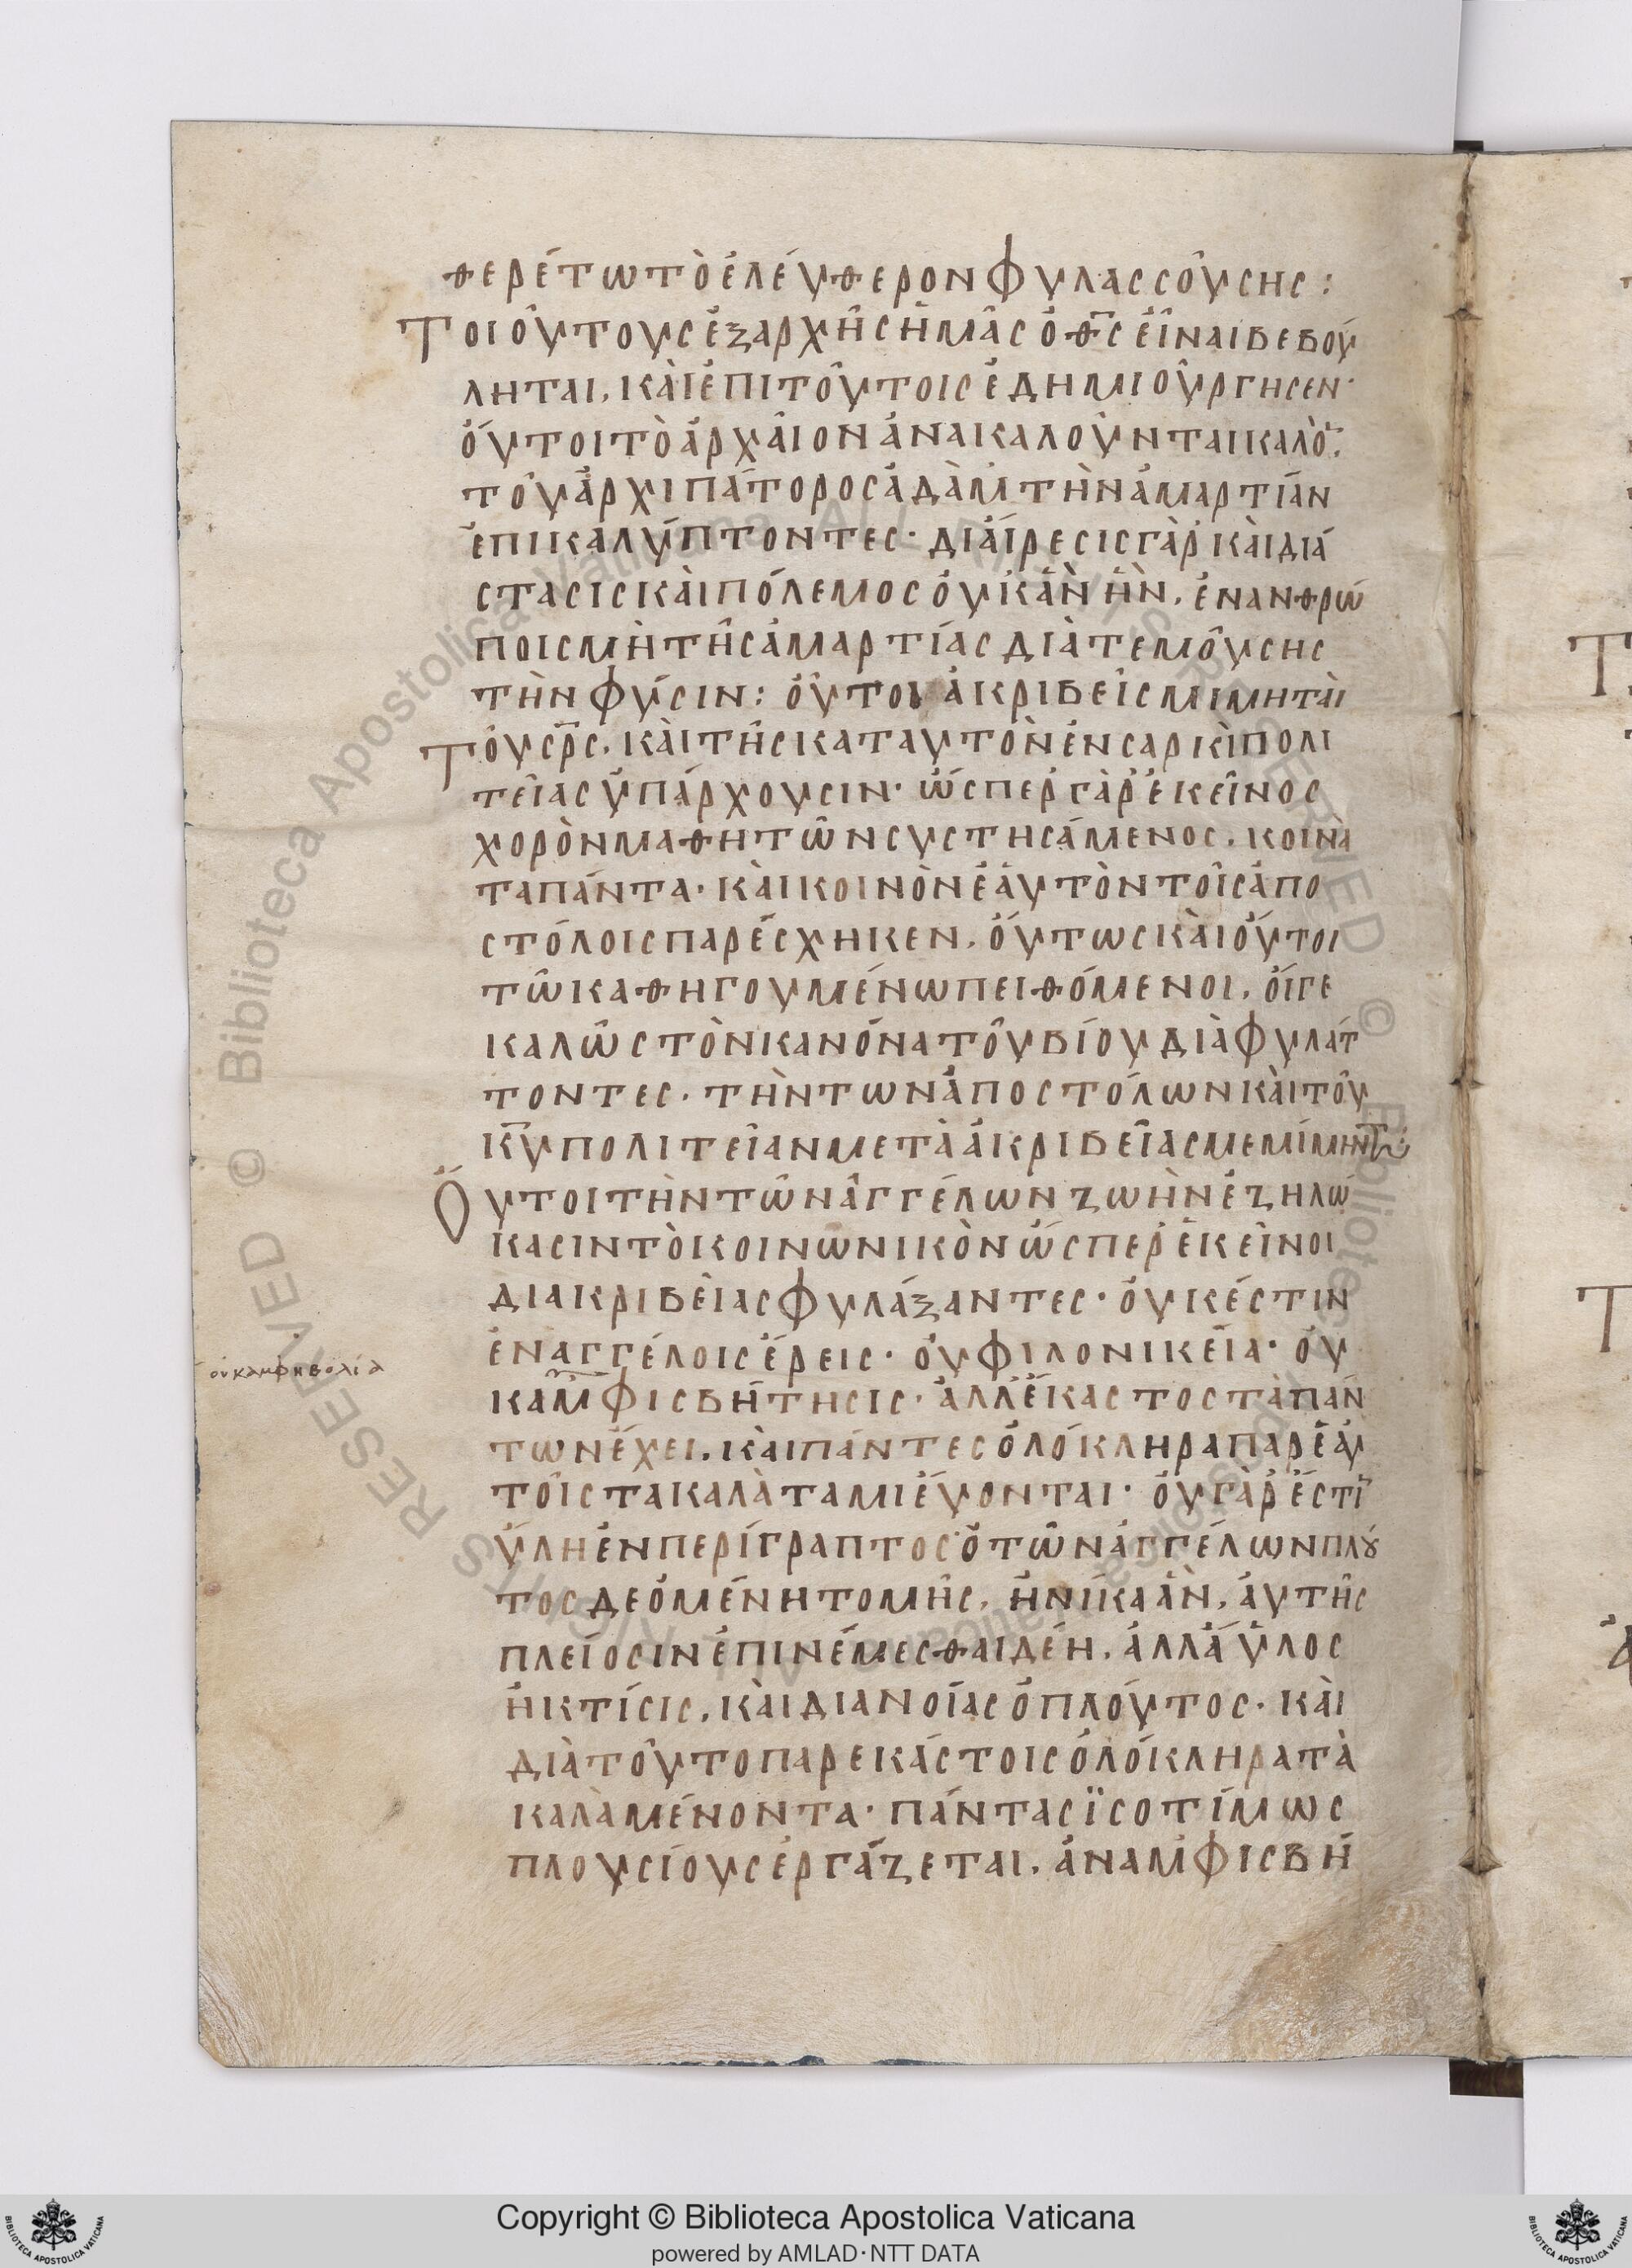 θερέτωτὸἐλέυθερονφυλασσόυσης:
Τοιὁυτουςἐξαρχῆςἡμᾶςὁθ̅ςεἶναιβεβού
ληται,κὰιἐπιτόυτοιςἐδημιὁυργησεν·
ὅυτοιτὸἀρχᾶιονἀνακαλοῦνταικαλὸ̅·
τοῦἀρχιπάτοροςἀδὰμτὴνἁμαρτίαν
ἐπικαλύπτοντες· διάιρεσιςγὰρκὰιδιά
στασιςκὰιπόλεμοςὀυκἂνἦν, ἐνανθρώ
ποιςμὴτῆςἁμαρτίαςδιὰτεμόυσης
τὴνφύσιν: ὅυτοιἀκριβεῖςμιμητὰι
Τὁυσ̅ρ̅ς, κὰιτῆςκαταυτὸνἐνσαρκὶπολι
τείαςὑπάρχουσιν· ὥσπεργὰρἐκεῖνος
χορὸνμαθητῶνσυστησάμενος, κοινὰ
ταπάντα· κὰικοινὸνἑἀυτὸντοῖςἀπο
στόλοιςπαρέσχηκεν, ὅυτωςκὰιὅυτοι
τῶκαθηγουμένωπειθόμενοι, ὅιγε
καλῶςτὸνκανόνατοῦβίουδιὰφυλάτ
τοντες· τὴντωνἀποστόλωνκὰιτοῦ
κ̅υ̅πολιτεῖανμετὰἀκριβεῖαςμεμίμηντ:
Ὅυτοιτὴντῶνἀγγέλωνζωὴνἐζηλώ
κασιντὸκοινωνικὸνὥσπερἐκεῖνοι
διακριβὲιαςφυλάξαντες· ὀυκέστιν
ἐναγγέλοιςἔρεις· ὀυφιλονικεία· ὀυ
καμφισβήτησις· ἀλλἕκαστοςτὰπάν
τωνἔχει, κὰιπάντεςὁλόκληραπαρἑἀυ
τοῖςτακαλὰταμιἐυονται· ὀυγὰρἔστῑ
ὕληἐνπερίγραπτος·ὁτῶνἀγγέλωνπλȣ
τοςδεόμένητομῆς, ἡνίκαἂν, ἀυτῆς
πλείοσινἐπινέμεσθαιδέη, ἀλλἄϋλος
ἡκτίσις, κὰιδιανοίαςὁπλόυτος· κὰι
διὰτοῦτοπαρεκάστοιςὁλόκληρατὰ
καλὰμένοντα· πάνταςἰσοτίμως
πλουσίουςἐργάζεται, ἀναμφισβή
ουκαμφηβολία
Copyright © Biblioteca Apostolica Vaticana
powered by AMLAD·NTT DATA